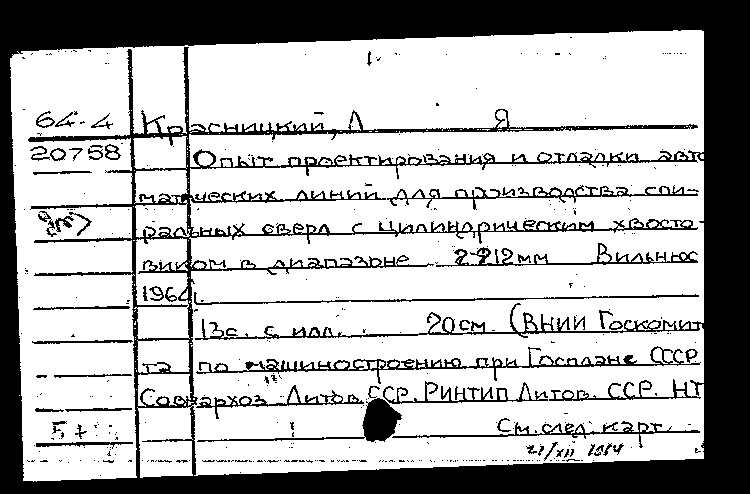 1.
64-4 Красницкий, Л Я
20758 Опыт проектирования и отладки авто
матических линий для производства спи-
ральных сверл с цилиндрическим хвосто-
виком в диапазоне 2-212мм Вильнюс
1964.
13с. с илл. 20см. (ВНИИ Госкомит
та по машиностроению при Госплане СССР
Совнархоз Литов. ССР. РИНТИП Литов. ССР. НТ
5+ См. след. карт.